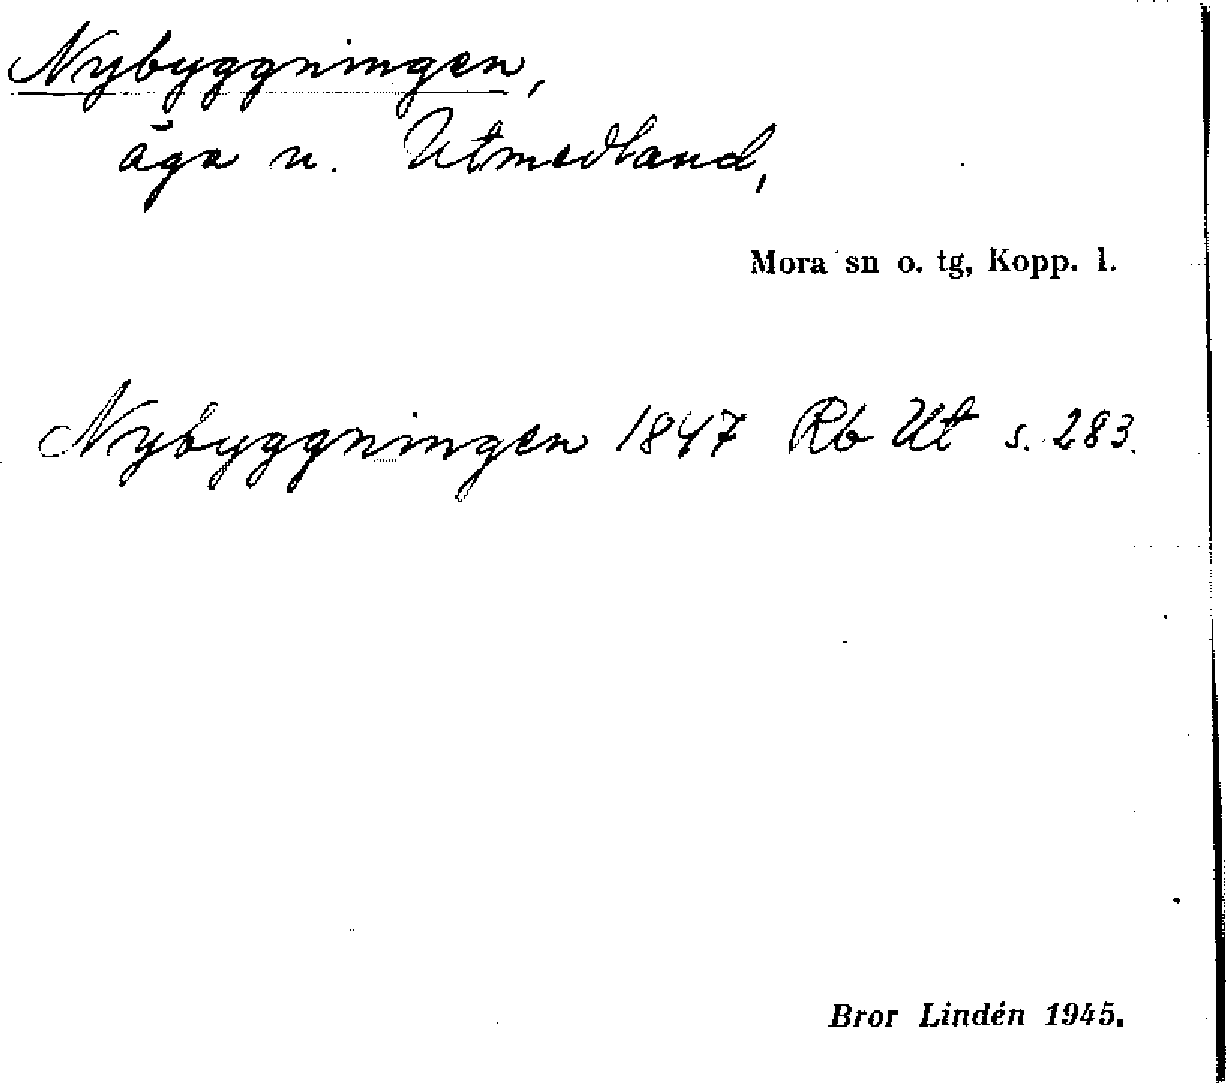 Nybyggningen,
äga n. Utmedland,
Mora sn o. tg, Kopp. l.
Nybyggningen 1847 Rb Ut s. 283.
Bror Lindén 1945.